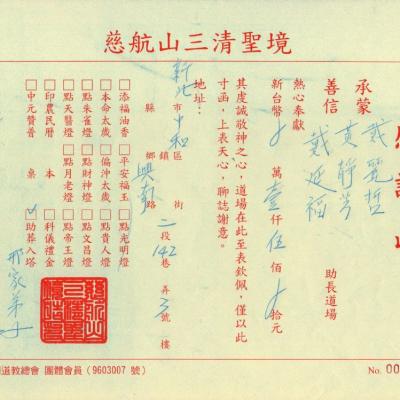 慈航山三清聖境
承蒙
善信
戴麗哲
黃靜芳
戴延福
助長道場
熱心奉獻
新台幣 萬壹仟伍佰 拾元
其虔誠敬神之心，道場在此至表欽佩，僅以此
寸函，上表天心，聊誌謝意。
地址：
新北市中和區 街
縣 鄉鎮 路
二段142巷 弄3號 樓
□添福油香 □平安福玉 □點光明燈
□本命太歲 □偏沖太歲 □點貴人燈
□點朱雀燈 □點財神燈 □點文昌燈
□點天醫燈 □點月老燈 □點帝王燈
□印農民曆 本 □科儀禮金
□中元贊普 桌 助葬入塔
邢家弟子
道教總會 團體會員（9603007 號）
No. 00